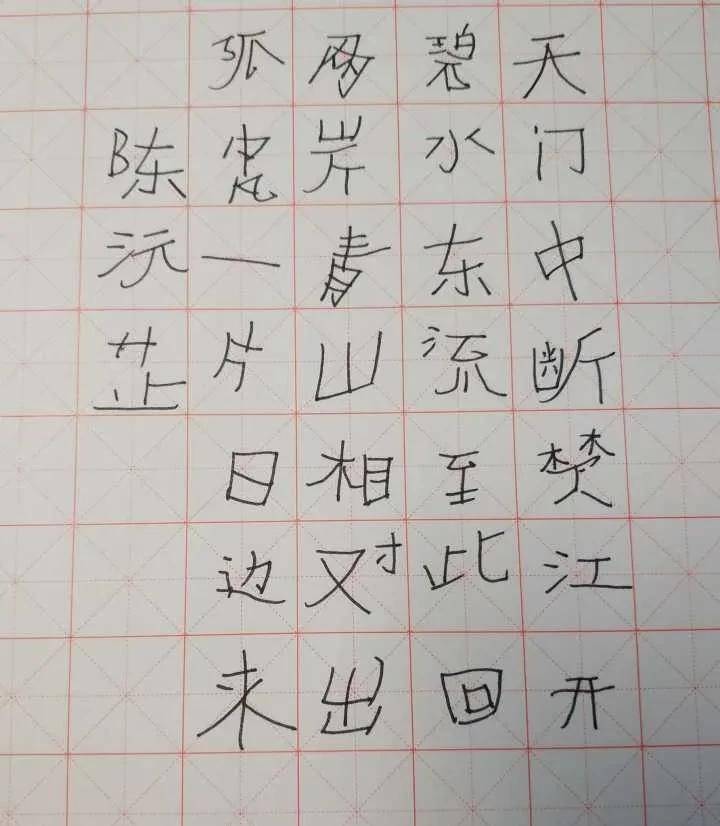 天门中断楚江开
碧水东流至此回
两岸青山相对出
孤帆一片日边来
陈沅芷